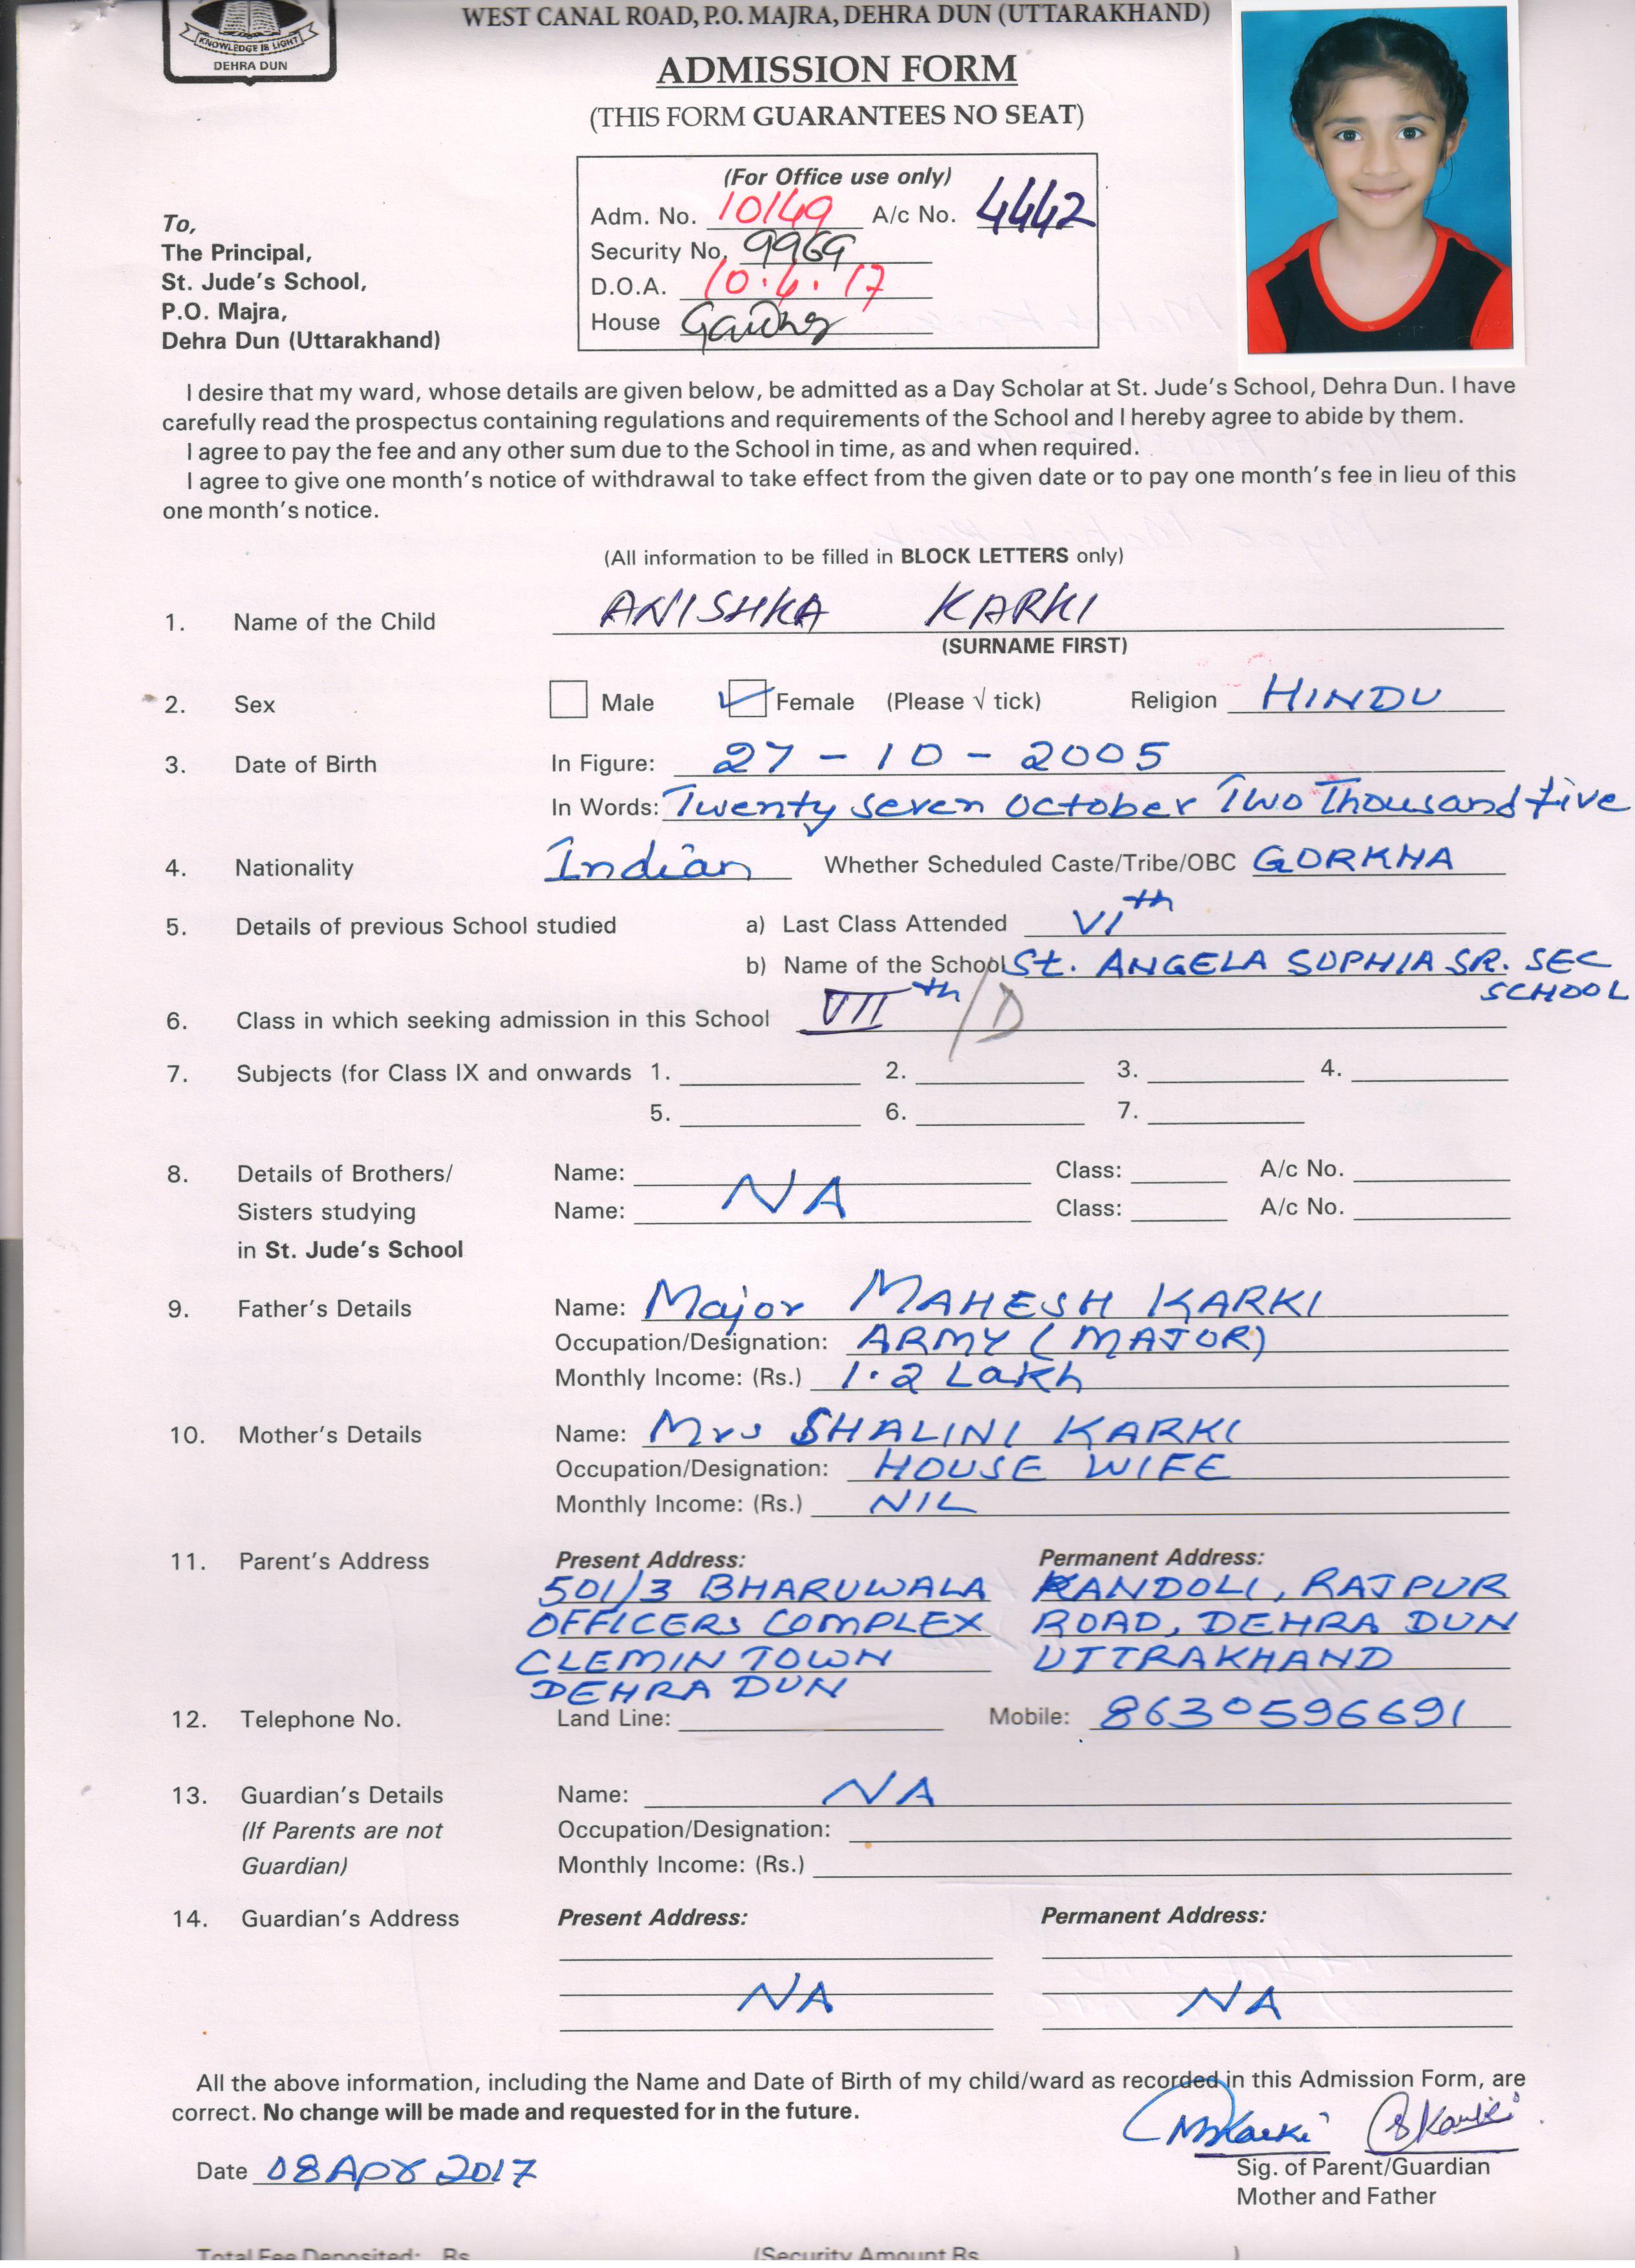 KNOWLEDGE IS LIGHT
DEHRA DUN
WEST CANAL ROAD, P.O. MAJRA, DEHRA DUN (UTTARAKHAND)
ADMISSION FORM
(THIS FORM GUARANTEES NO SEAT)
(For Office use only)
Adm. No. 10149 A/c No. 4442
Security No. 9969
D.O.A. 10.4.17
House
To,
The Principal,
St. Jude's School,
P.O. Majra,
Dehra Dun (Uttarakhand)
I desire that my ward, whose details are given below, be admitted as a Day Scholar at St. Jude's School, Dehra Dun. I have
carefully read the prospectus containing regulations and requirements of the School and I hereby agree to abide by them.
I agree to pay the fee and any other sum due to the School in time, as and when required.
I agree to give one month's notice of withdrawal to take effect from the given date or to pay one month's fee in lieu of this
one month's notice.
(All information to be filled in BLOCK LETTERS only)
1. Name of the Child ANISHKA KARKI
(SURNAME FIRST)
2. Sex Male Female (Please √ tick) Religion HINDU
3. Date of Birth In Figure: 27-10-2005
In Words: Twenty seven October Two Thousand five
4. Nationality Indian Whether Scheduled Caste/Tribe/OBC GORKHA
5. Details of previous School studied a) Last Class Attended VIth
b) Name of the School St. ANGELA SOPHIA SR. SEC
SCHOOL
6. Class in which seeking admission in this School VIIth/D
7. Subjects (for Class IX and onwards 1. 2. 3. 4.
5. 6. 7.
8. Details of Brothers/ Name: Class: A/c No.
Sisters studying Name: NA Class: A/c No.
in St. Jude's School
9. Father's Details Name: Major MAHESH KARKI
Occupation/Designation: ARMY (MAJOR)
Monthly Income: (Rs.) 1.2 Lakh
10. Mother's Details Name: Mrs SHALINI KARKI
Occupation/Designation: HOUSE WIFE
Monthly Income: (Rs.) NIL
11. Parent's Address Present Address: Permanent Address:
501/3 BHARUWALA KANDOLI, RAJPUR
OFFICERS COMPLEX ROAD, DEHRA DUN
CLEMIN TOWN UTTRAKHAND
DEHRA DUN
12. Telephone No. Land Line: Mobile: 8630596691
13. Guardian's Details Name: NA
(If Parents are not Occupation/Designation:
Guardian) Monthly Income: (Rs.)
14. Guardian's Address Present Address: Permanent Address:
NA NA
All the above information, including the Name and Date of Birth of my child/ward as recorded in this Admission Form, are
correct. No change will be made and requested for in the future.
MKarki SKarki
Date 08 Apr 2017
Sig. of Parent/Guardian
Mother and Father
Total Fee Deposited: Rs. (Security Amount Rs. )